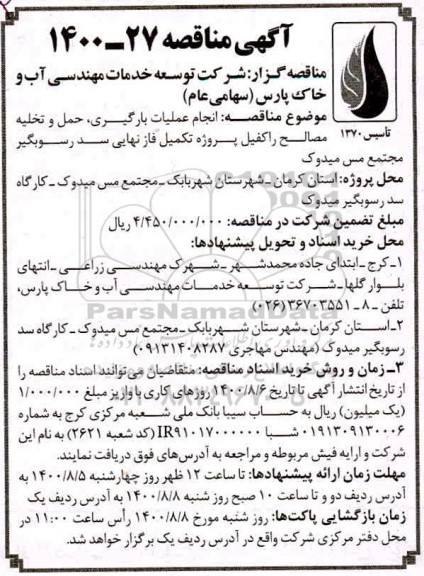 آگهی مناقصه ۲۷ـ۱۴۰۰
مناقصه گزار: شرکت توسعه خدمات مهندسی آب و
خاک پارس (سهامی عام)
تاسیس ۱۳۷۰
موضوع مناقصه: انجام عملیات بارگیری، حمل و تخلیه
مصالح راکفیل پروژه تکمیل فاز نهایی سد رسوبگیر
مجتمع مس میدوک
محل پروژه: استان کرمان ـ شهرستان شهربابک ـ مجتمع مس میدوک ـ کارگاه
سد رسوبگیر میدوک
مبلغ تضمین شرکت در مناقصه: ۴/۴۵۰/۰۰۰/۰۰۰ ریال
محل خرید اسناد و تحویل پیشنهادها:
۱ـ کرج ـ ابتدای جاده محمدشهر ـ شهرک مهندسی زراعی ـ انتهای
بلوار گلها ـ شرکت توسعه خدمات مهندسی آب و خاک پارس،
تلفن ـ ۸ ـ ۳۶۷۰۳۵۵۱ (۰۲۶)
ParsNamadData
۲ـ استان کرمان ـ شهرستان شهربابک ـ مجتمع مس میدوک ـ کارگاه سد
رسوبگیر میدوک (مهندس مهاجری ۰۹۱۳۱۴۰۸۲۸۷)
۳ـ زمان و روش خرید اسناد مناقصه: متقاضیان می‌توانند اسناد مناقصه را
از تاریخ انتشار آگهی تا تاریخ ۱۴۰۰/۸/۶ روزهای کاری با واریز مبلغ ۱/۰۰۰/۰۰۰
(یک میلیون) ریال به حساب سیبا بانک ملی شعبه مرکزی کرج به شماره
۰۱۰۹۱۳۰۹۱۳۰۰۶ شبا IR۹۱۰۱۷۰۰۰۰۰۰ (کد شعبه ۲۶۲۱) به نام این
شرکت و ارایه فیش مربوطه و مراجعه به آدرس‌های فوق دریافت نمایند.
مهلت زمان ارائه پیشنهادها: تا ساعت ۱۲ ظهر روز چهارشنبه ۱۴۰۰/۸/۵ به
آدرس ردیف دو و تا ساعت ۱۰ صبح روز شنبه ۱۴۰۰/۸/۸ به آدرس ردیف یک
زمان بازگشایی پاکت‌ها: روز شنبه مورخ ۱۴۰۰/۸/۸ رأس ساعت ۱۱:۰۰ در
محل دفتر مرکزی شرکت واقع در آدرس ردیف یک برگزار خواهد شد.